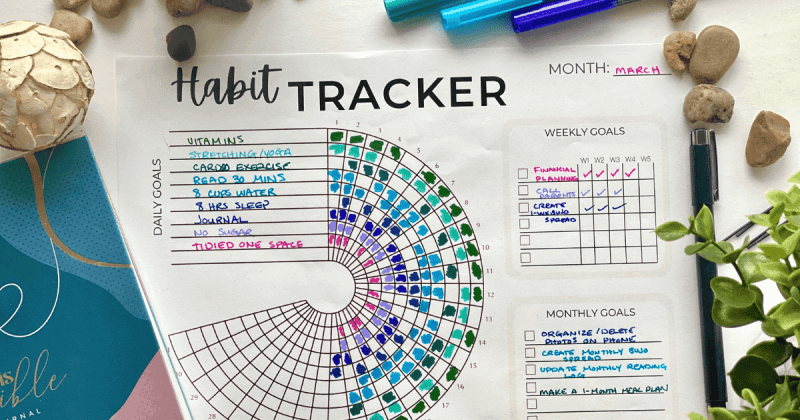 Habit TRACKER
MONTH: MARCH
DAILY GOALS
VITAMINS
STRETCHING/YOGA
CARDIO EXERCISE
READ 30 MINS
8 CUPS WATER
8 HRS SLEEP
JOURNAL
NO SUGAR
TIDIED ONE SPACE
1
2
3
4
5
6
7
8
9
10
11
12
13
14
15
16
17
27
28
WEEKLY GOALS
W1 W2 W3 W4 W5
FINANCIAL
PLANNING
CALL
PARENTS
CREATE
SPREAD
MONTHLY GOALS
ORGANIZE/DELETE
PHOTOS ON PHONE
CREATE MONTHLY BUJO
SPREAD
UPDATE MONTHLY READING
LOG
MAKE A 1-MONTH MEAL PLAN